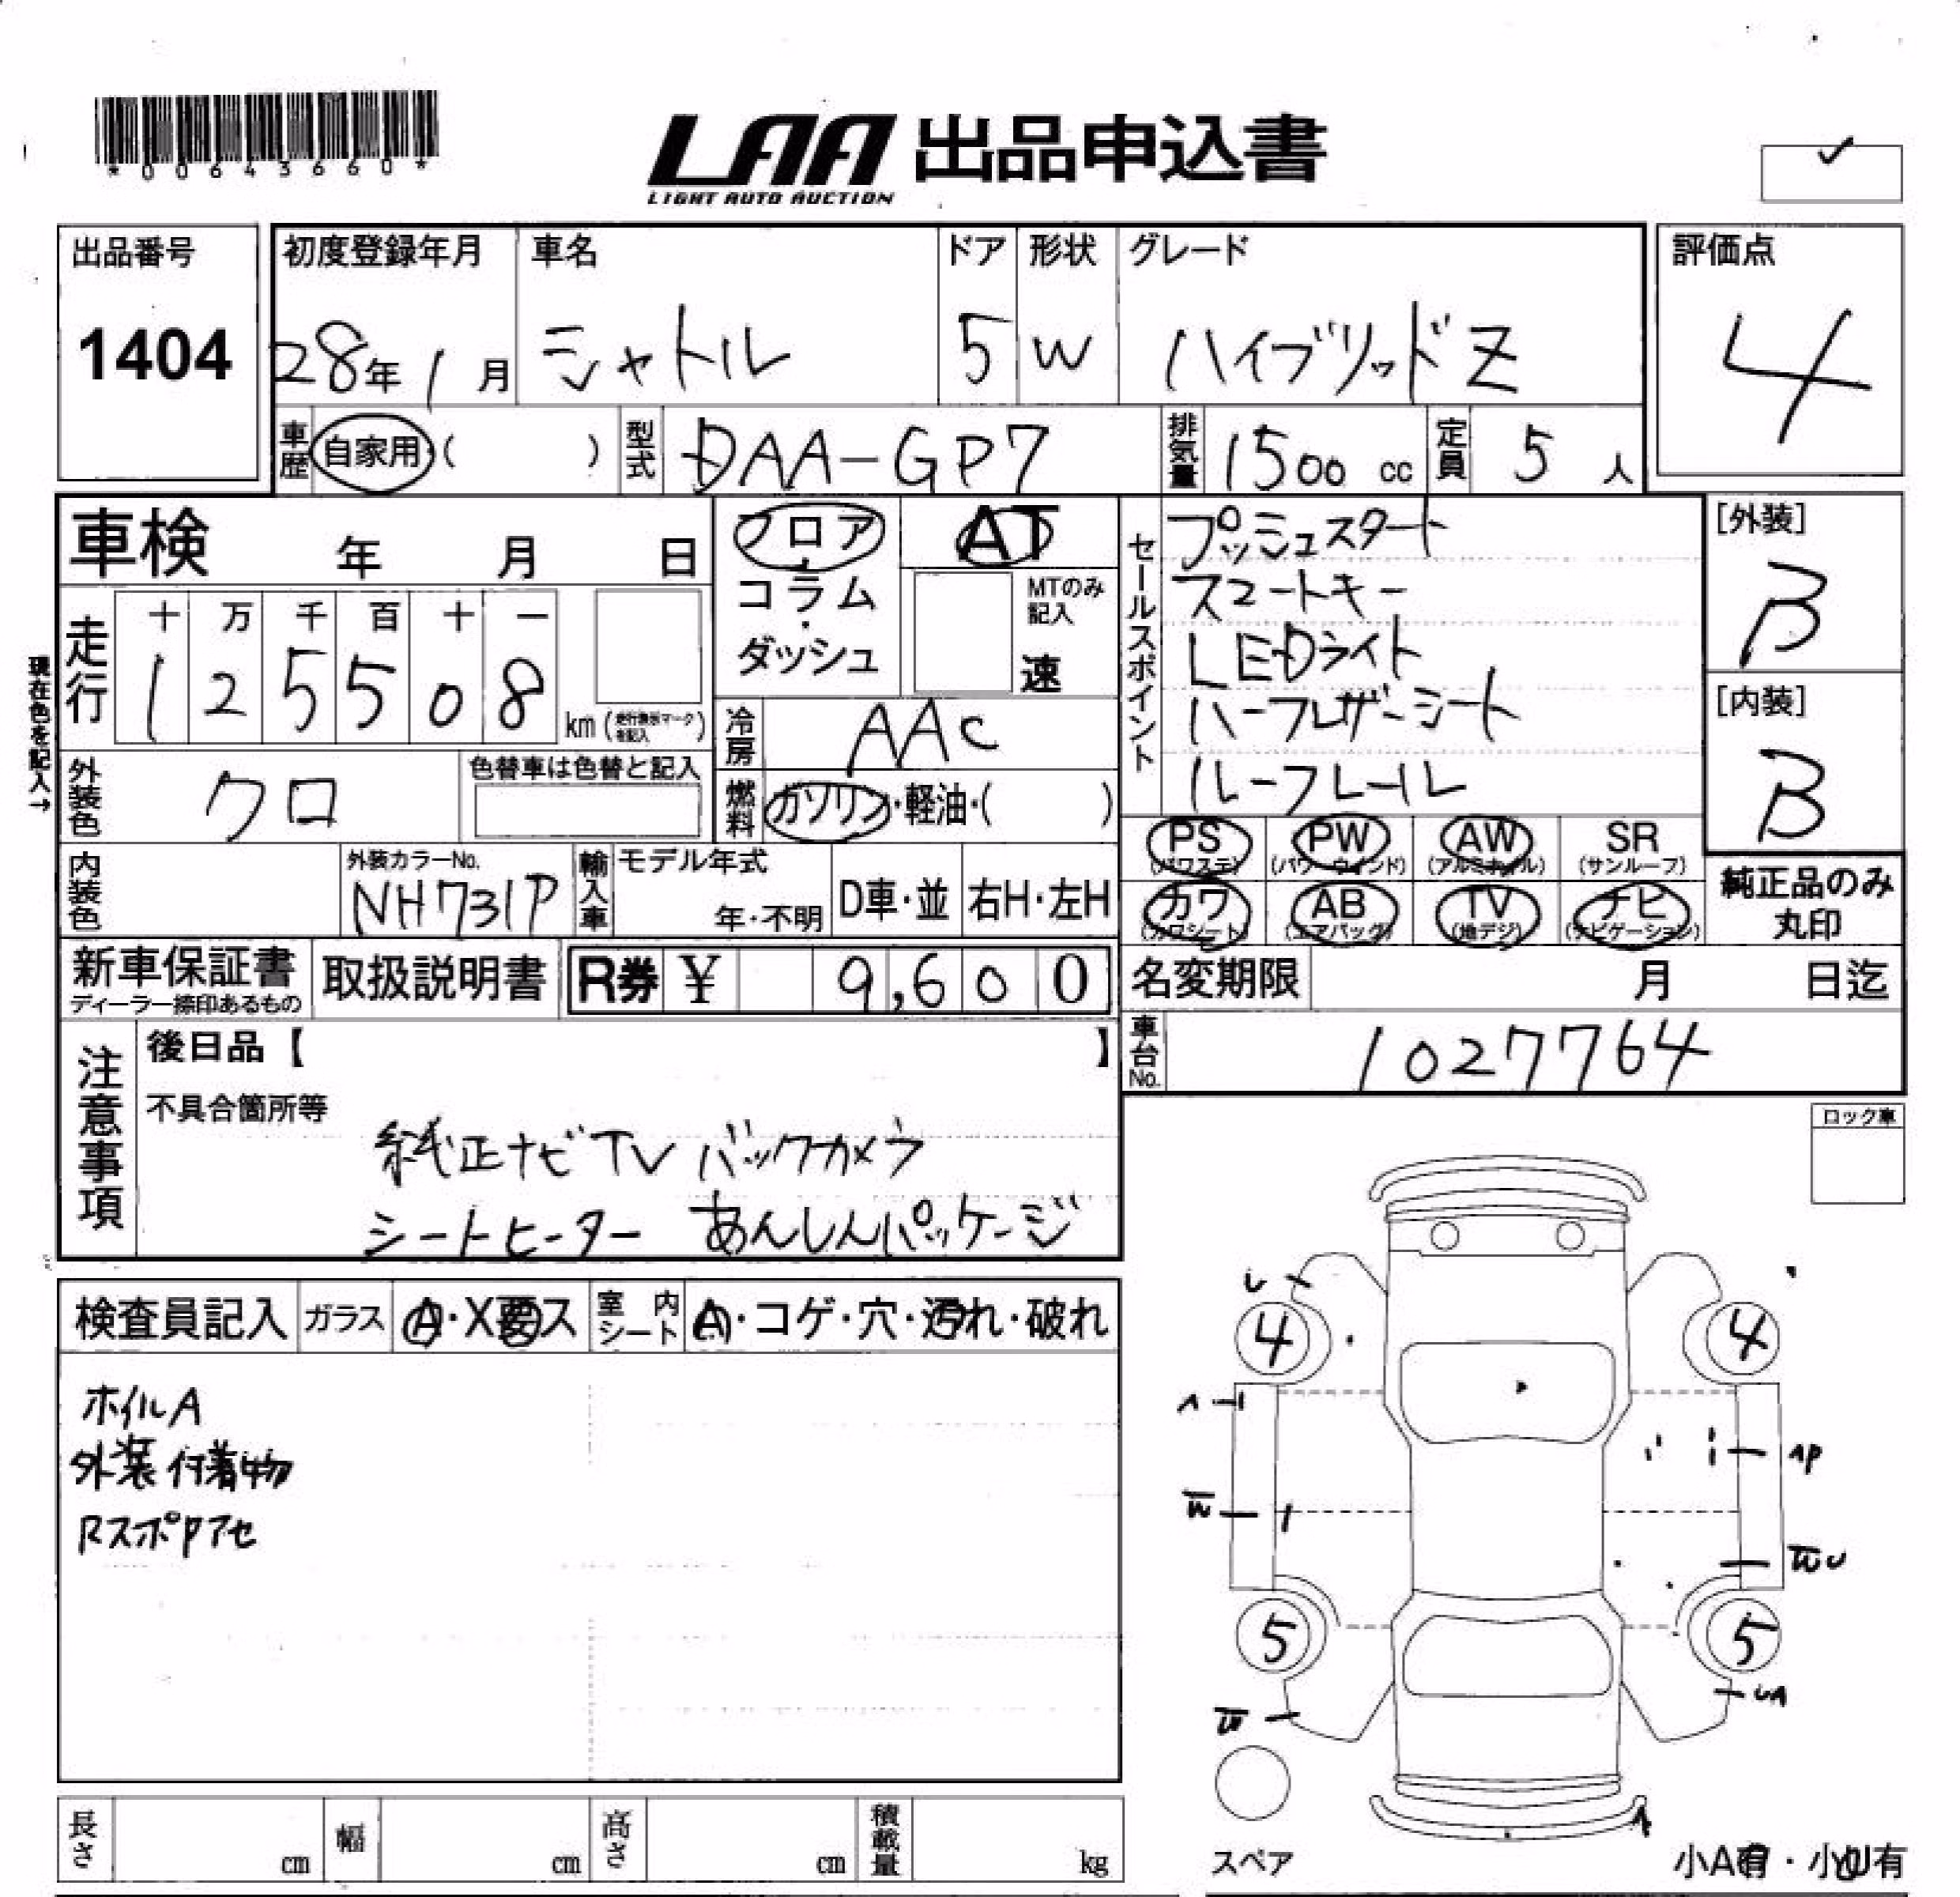 *00643660*
LAA 出品申込書
LIGHT AUTO AUCTION
出品番号
1404
初度登録年月
28年1月
車名
シャトル
ドア
5
形状
W
グレード
ハイブリッドZ
評価点
4
車歴
自家用( )
型式
DAA-GP7
排気量
1500 cc
定員
5 人
車検 年 月 日
フロア
コラム
・
ダッシュ
AT
MTのみ
記入
速
セールスポイント
プッシュスタート
スマートキー
LEDライト
ハーフレザーシート
ルーフレール
[外装]
B
[内装]
B
現在色を記入→
走行
十 万 千 百 十 一
1 2 5 5 0 8
km
冷房
AAC
外装色
クロ
色替車は色替と記入
燃料
ガソリン・軽油・( )
PS PW AW SR
(パワステ) (パワーウインド) (アルミホイル) (サンルーフ)
カワ AB TV ナビ
(カワシート) (エアバッグ) (地デジ) (ナビゲーション)
純正品のみ
丸印
内装色
外装カラーNo.
NH731P
輸入車
モデル年式
年・不明
D車・並
右H・左H
新車保証書
ディーラー捺印あるもの
取扱説明書
R券 ¥ 9,600
名変期限 月 日迄
車台No.
1027764
注意事項
後日品【 】
不具合箇所等
純正ナビTV バックカメラ
シートヒーター あんしんパッケージ
ロック車
検査員記入
ガラス
A・X要ス
室内シート
A・コゲ・穴・汚れ・破れ
ホイルA
外装付着物
RスポPアセ
U
4
4
A
AP
W
WU
5
5
UA
W
A
スペア
小A有・小U有
長さ cm
幅 cm
高さ cm
積載量 kg